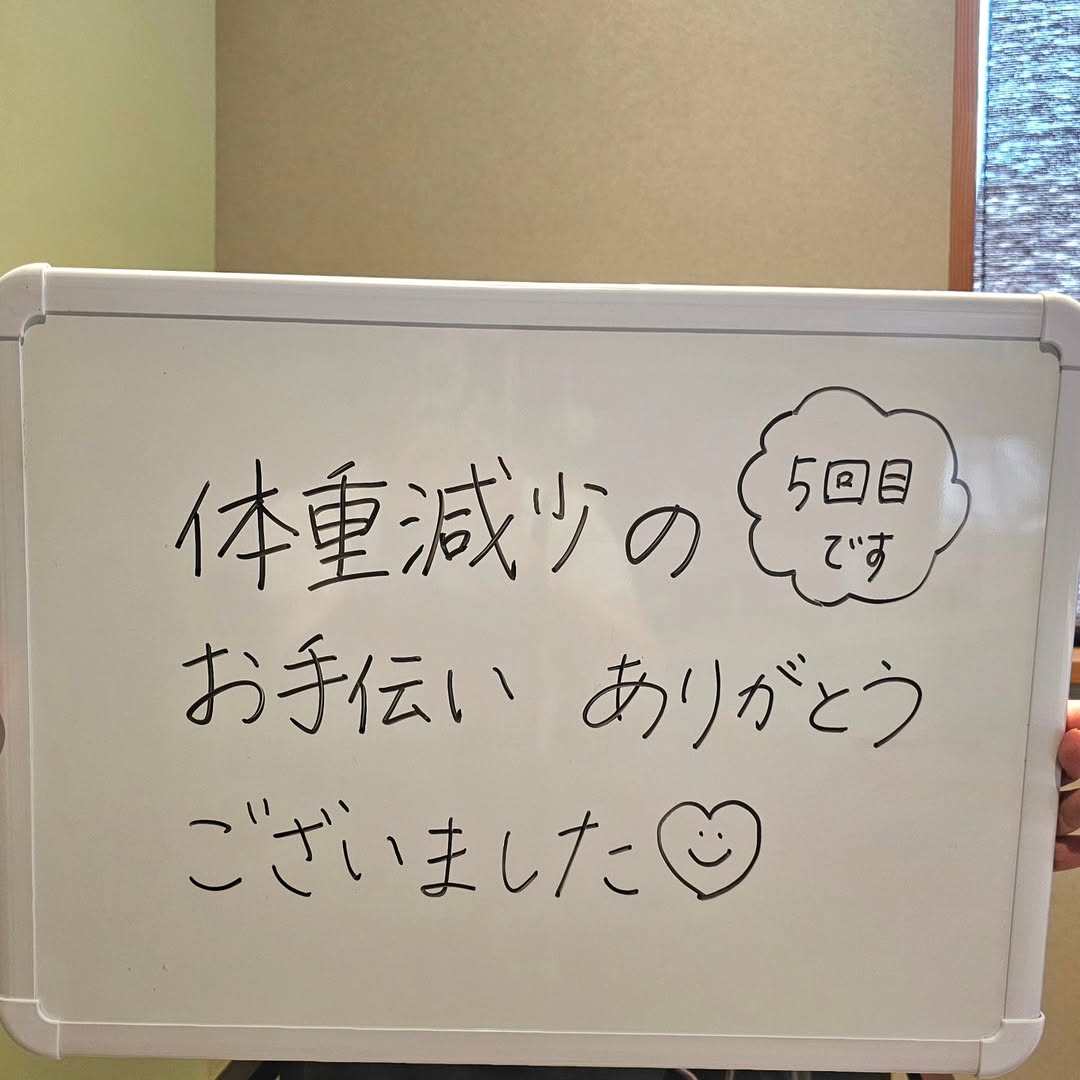 体重減少の
お手伝い ありがとう
ございました
5回目
です